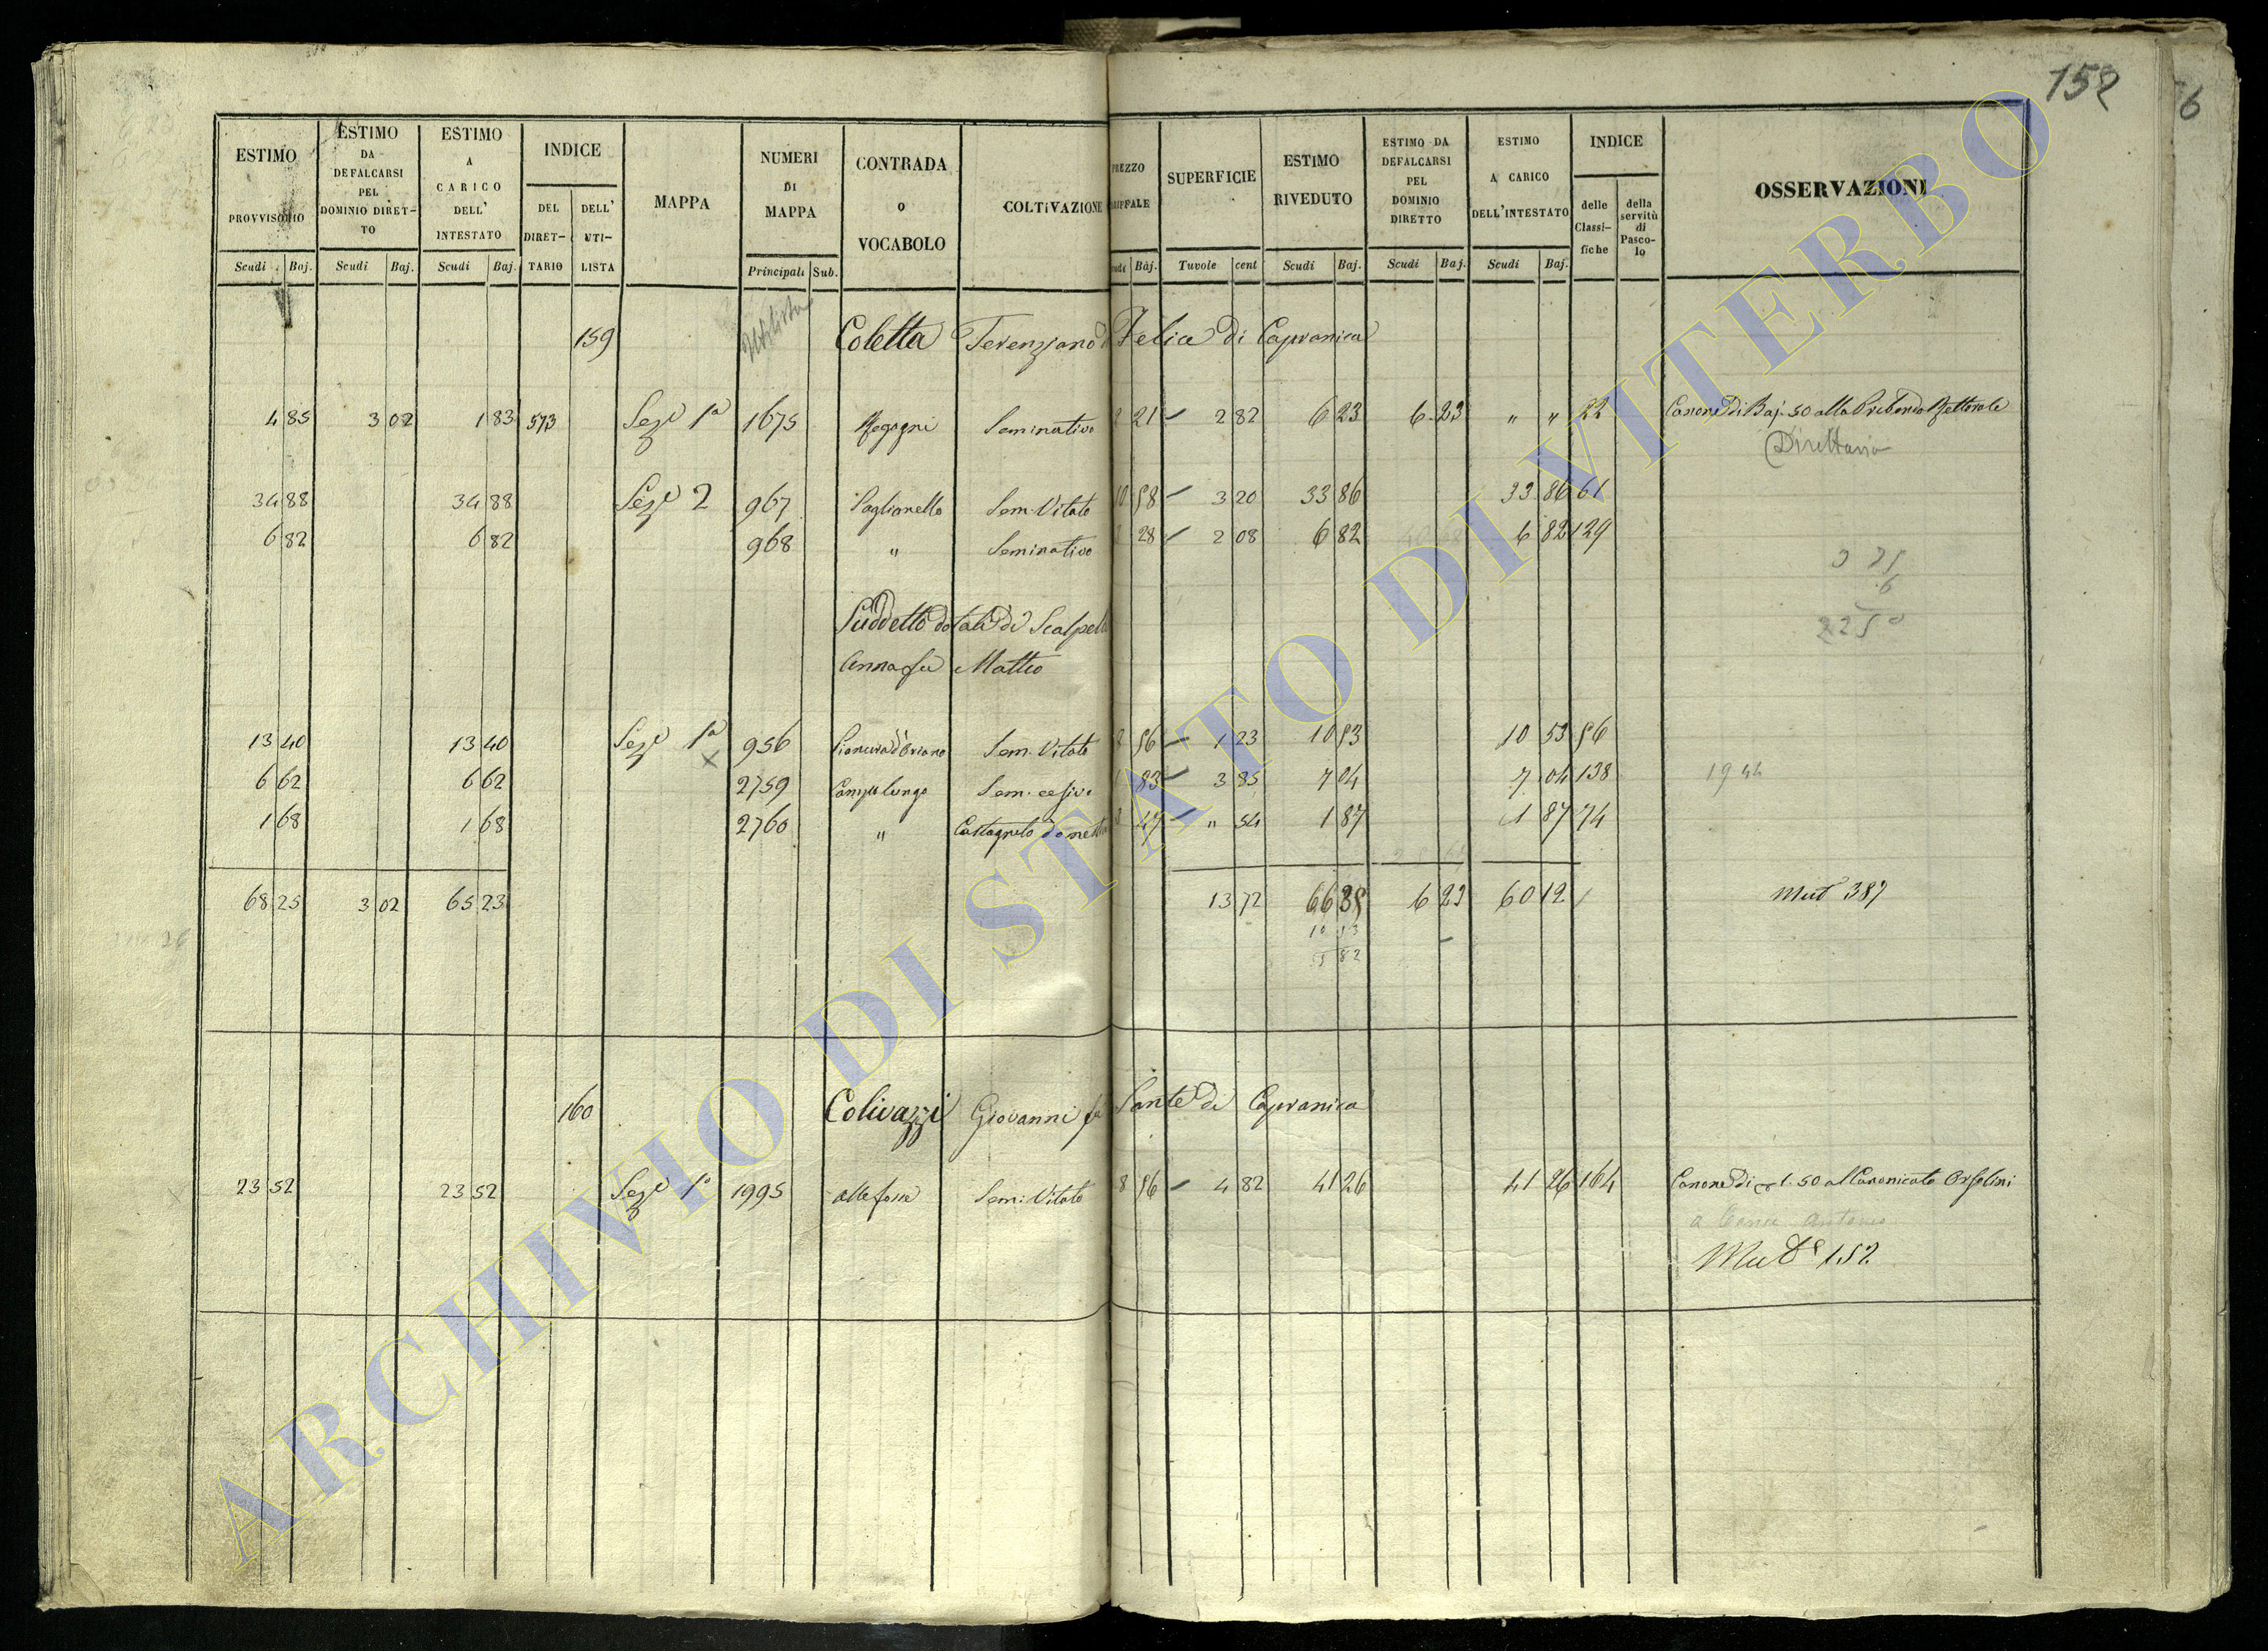 152
6
ESTIMO PROVVISORIO Scudi Baj.
ESTIMO DA DEFALCARSI PEL DOMINIO DIRETTO Scudi Baj.
ESTIMO A CARICO DELL' INTESTATO Scudi Baj.
INDICE DEL DIRETTARIO DELL' UTILISTA
MAPPA
NUMERI DI MAPPA Principali Sub.
CONTRADA O VOCABOLO
COLTIVAZIONE
Baj.
SUPERFICIE Tavole cent
ESTIMO RIVEDUTO Scudi Baj.
ESTIMO DA DEFALCARSI PEL DOMINIO DIRETTO Scudi Baj.
ESTIMO A CARICO DELL'INTESTATO Scudi Baj.
INDICE delle Classifiche della servitù di Pascolo
OSSERVAZIONI
159 Utilista Coletta Terenziano di Felice di Capranica
4 85 3 02 1 83 573 Seze 1a 1675 Seminativo 21 2 82 6 23 6 23 " " 22 Canone di Baj. 50 alla Prebenda Rettorale
Direttaria
34 88 34 88 Seze 2 967 Paglianello Sem. Vitato 10 58 3 20 33 86 33 86 61
6 82 6 82 968 " Seminativo 28 2 08 6 82 6 82 129
3 75
6
22 50
Suddetto dotali di Scalpell
Anna fu Matteo
13 40 13 40 Seze 1a 956 Sem. Vitato 56 1 23 10 53 10 53 56
x
6 62 6 62 2759 Campo lungo Sem. cesivo 83 3 85 7 04 7 04 138 1944
1 68 1 68 2760 " Castagneto da 47 " 54 1 87 1 87 74
68 25 3 02 65 23 13 72 66 35 6 23 60 12 Mut 387
10 53
55 82
160 Colivazzi Giovanni fu Sante di Capranica
23 52 23 52 Seze 1a 1995 alle fosse Sem: Vitato 8 56 4 82 41 26 41 26 164 Canone di 1.50 al Canonicato Orsolini
a Antonio
Mute 152
ARCHIVIO DI STATO DI VITERBO